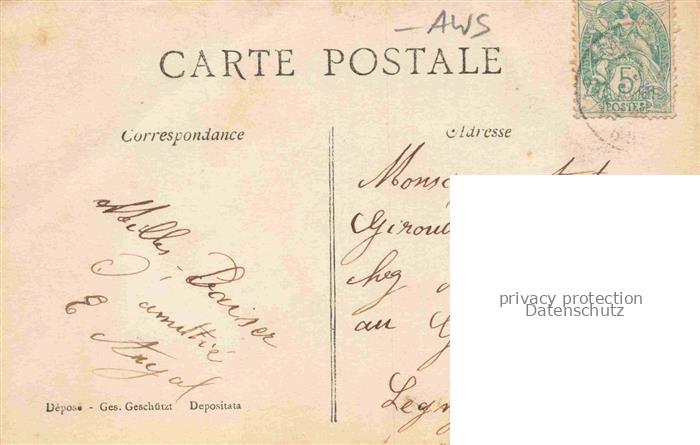 AWS
CARTE POSTALE
5c
POSTES
Correspondance
Adresse
Mille
Baiser
d'amitié
E
Monsi
Girou
chez
au
Legn
privacy protection
Datenschutz
Déposé - Ges. Geschützt Depositata